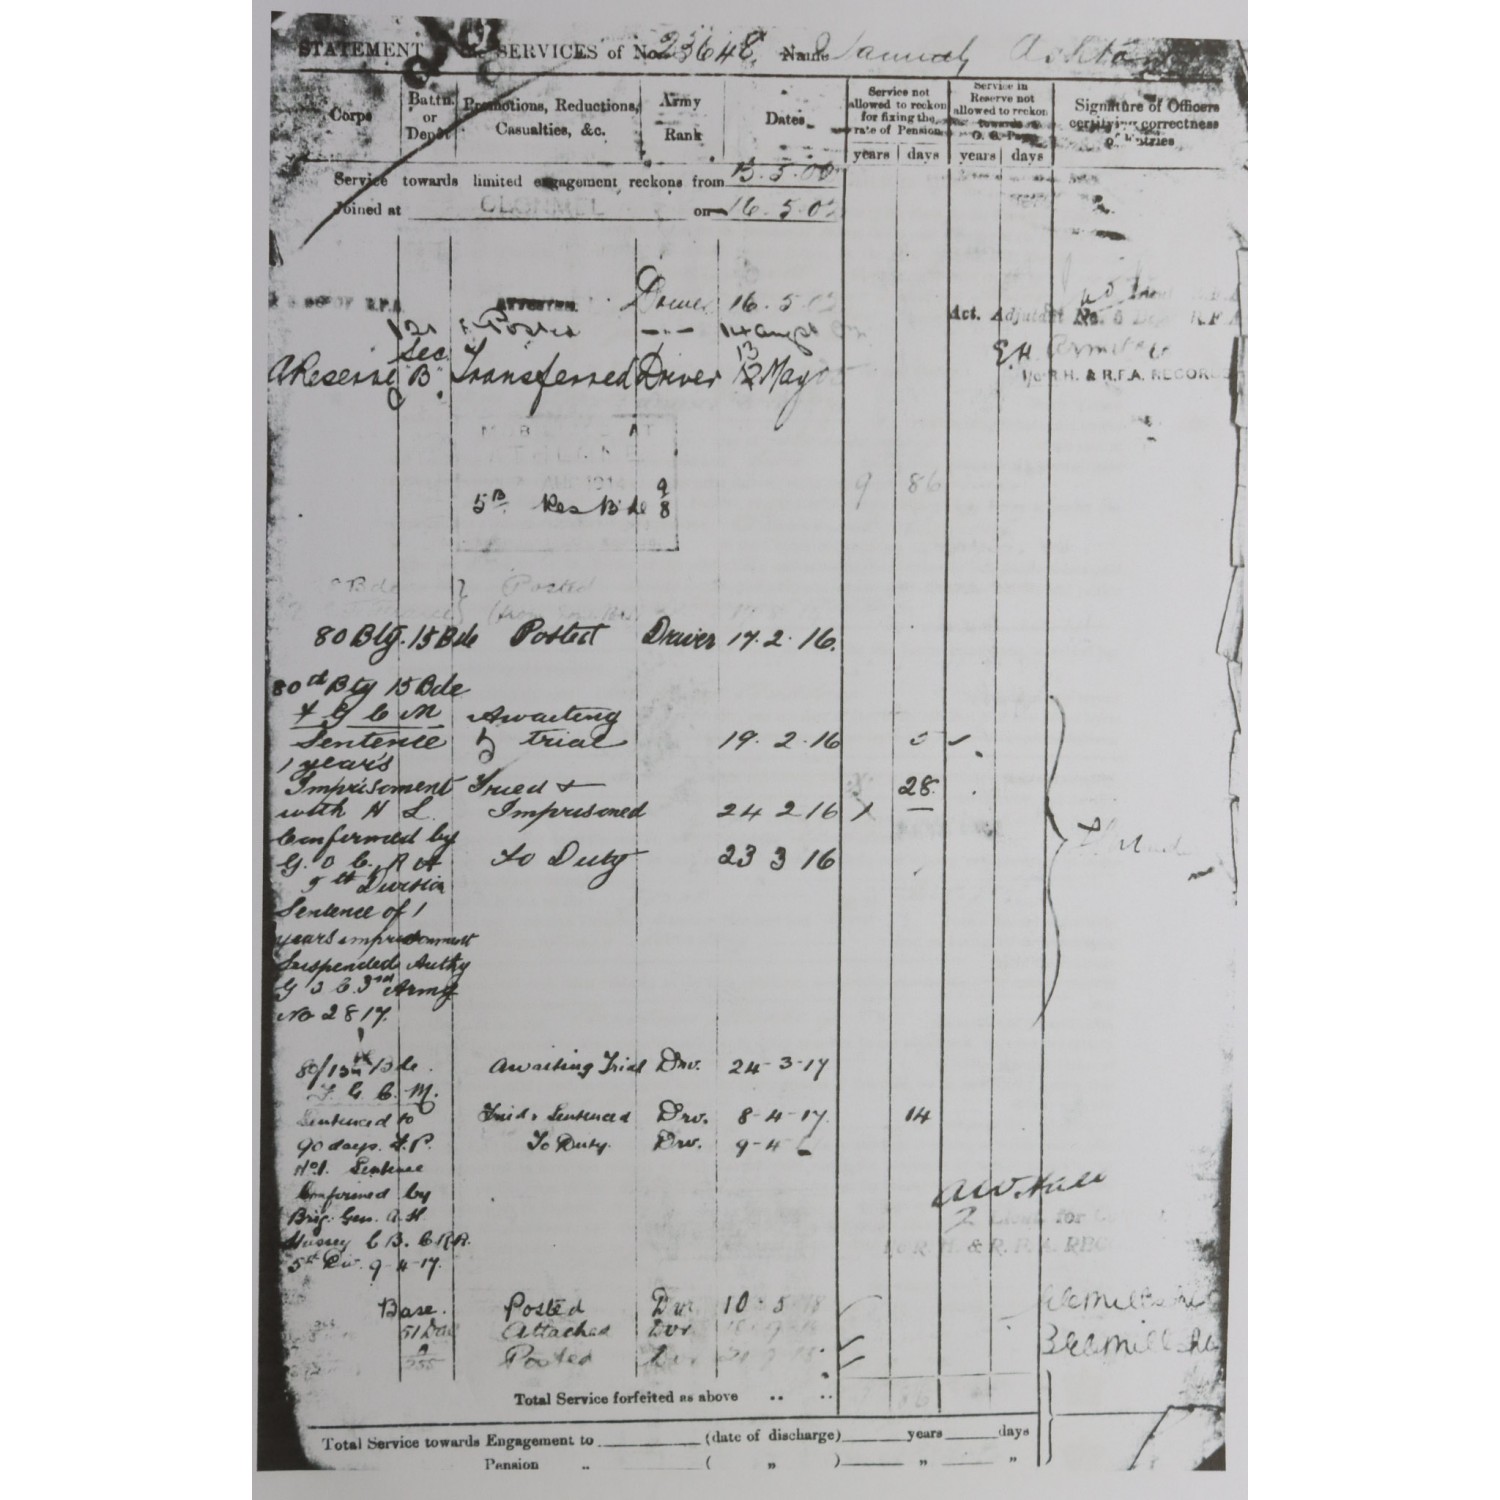 STATEMENT SERVICES of No. 23648 Name Samuel Ashton
Corps
Battn. or Depôt
Promotions, Reductions, Casualties, &c.
Army Rank
Dates
Service not allowed to reckon for fixing the rate of Pension
Service in Reserve not allowed to reckon towards G. C. Pay
Signature of Officers certifying correctness of Entries
years days years days
Service towards limited engagement reckons from 13.5.00
Joined at CLONMEL on 16.5.02
DEPOT R.F.A. ATTESTED. Driver 16.5.02
Act. Adjutant No. 6 Depot R.F.A.
121 Posted 14 Augst
A Reserve Sec. B Transferred Driver 13 May 05
E.H. Armitage
R.H. & R.F.A. RECORDS
MOB AT
ATHLONE
AUG 1914
9 86
5B Res Bde 9/8
Bde } Posted
80 Bty. 15 Bde Posted Driver 17.2.16.
80th Bty 15 Bde
F G C M Awaiting
Sentence trial 19.2.16
1 years
Imprisoment Tried + 28
with H L. Imprisoned 24 2 16
Confirmed by
G. O C. R A To Duty 23 3 16
5th Division
Sentence of 1
years imprisonment
Suspended Authy
G O C. 3rd Army
No 2817.
80/15th Bde. Awaiting Trial Drv. 24-3-17
F. G. C. M.
Sentenced to Tried & Sentenced Drv. 8-4-17. 14
90 days. F.P. To Duty. Drv. 9-4
No1. Sentence
Confirmed by
Brig. Gen. A. H
Hussey C B. C R A.
5th Div. 9-4-17.
A.W. Hill
2 Lieut. for
R.H. & R.F.A. REC
Base. Posted Dvr. 10.5.18
51 DAC Attached Dvr.
A/255 Posted Dvr
Total Service forfeited as above .. ..
Total Service towards Engagement to (date of discharge) years days
Pension .. ( „ ) „ „